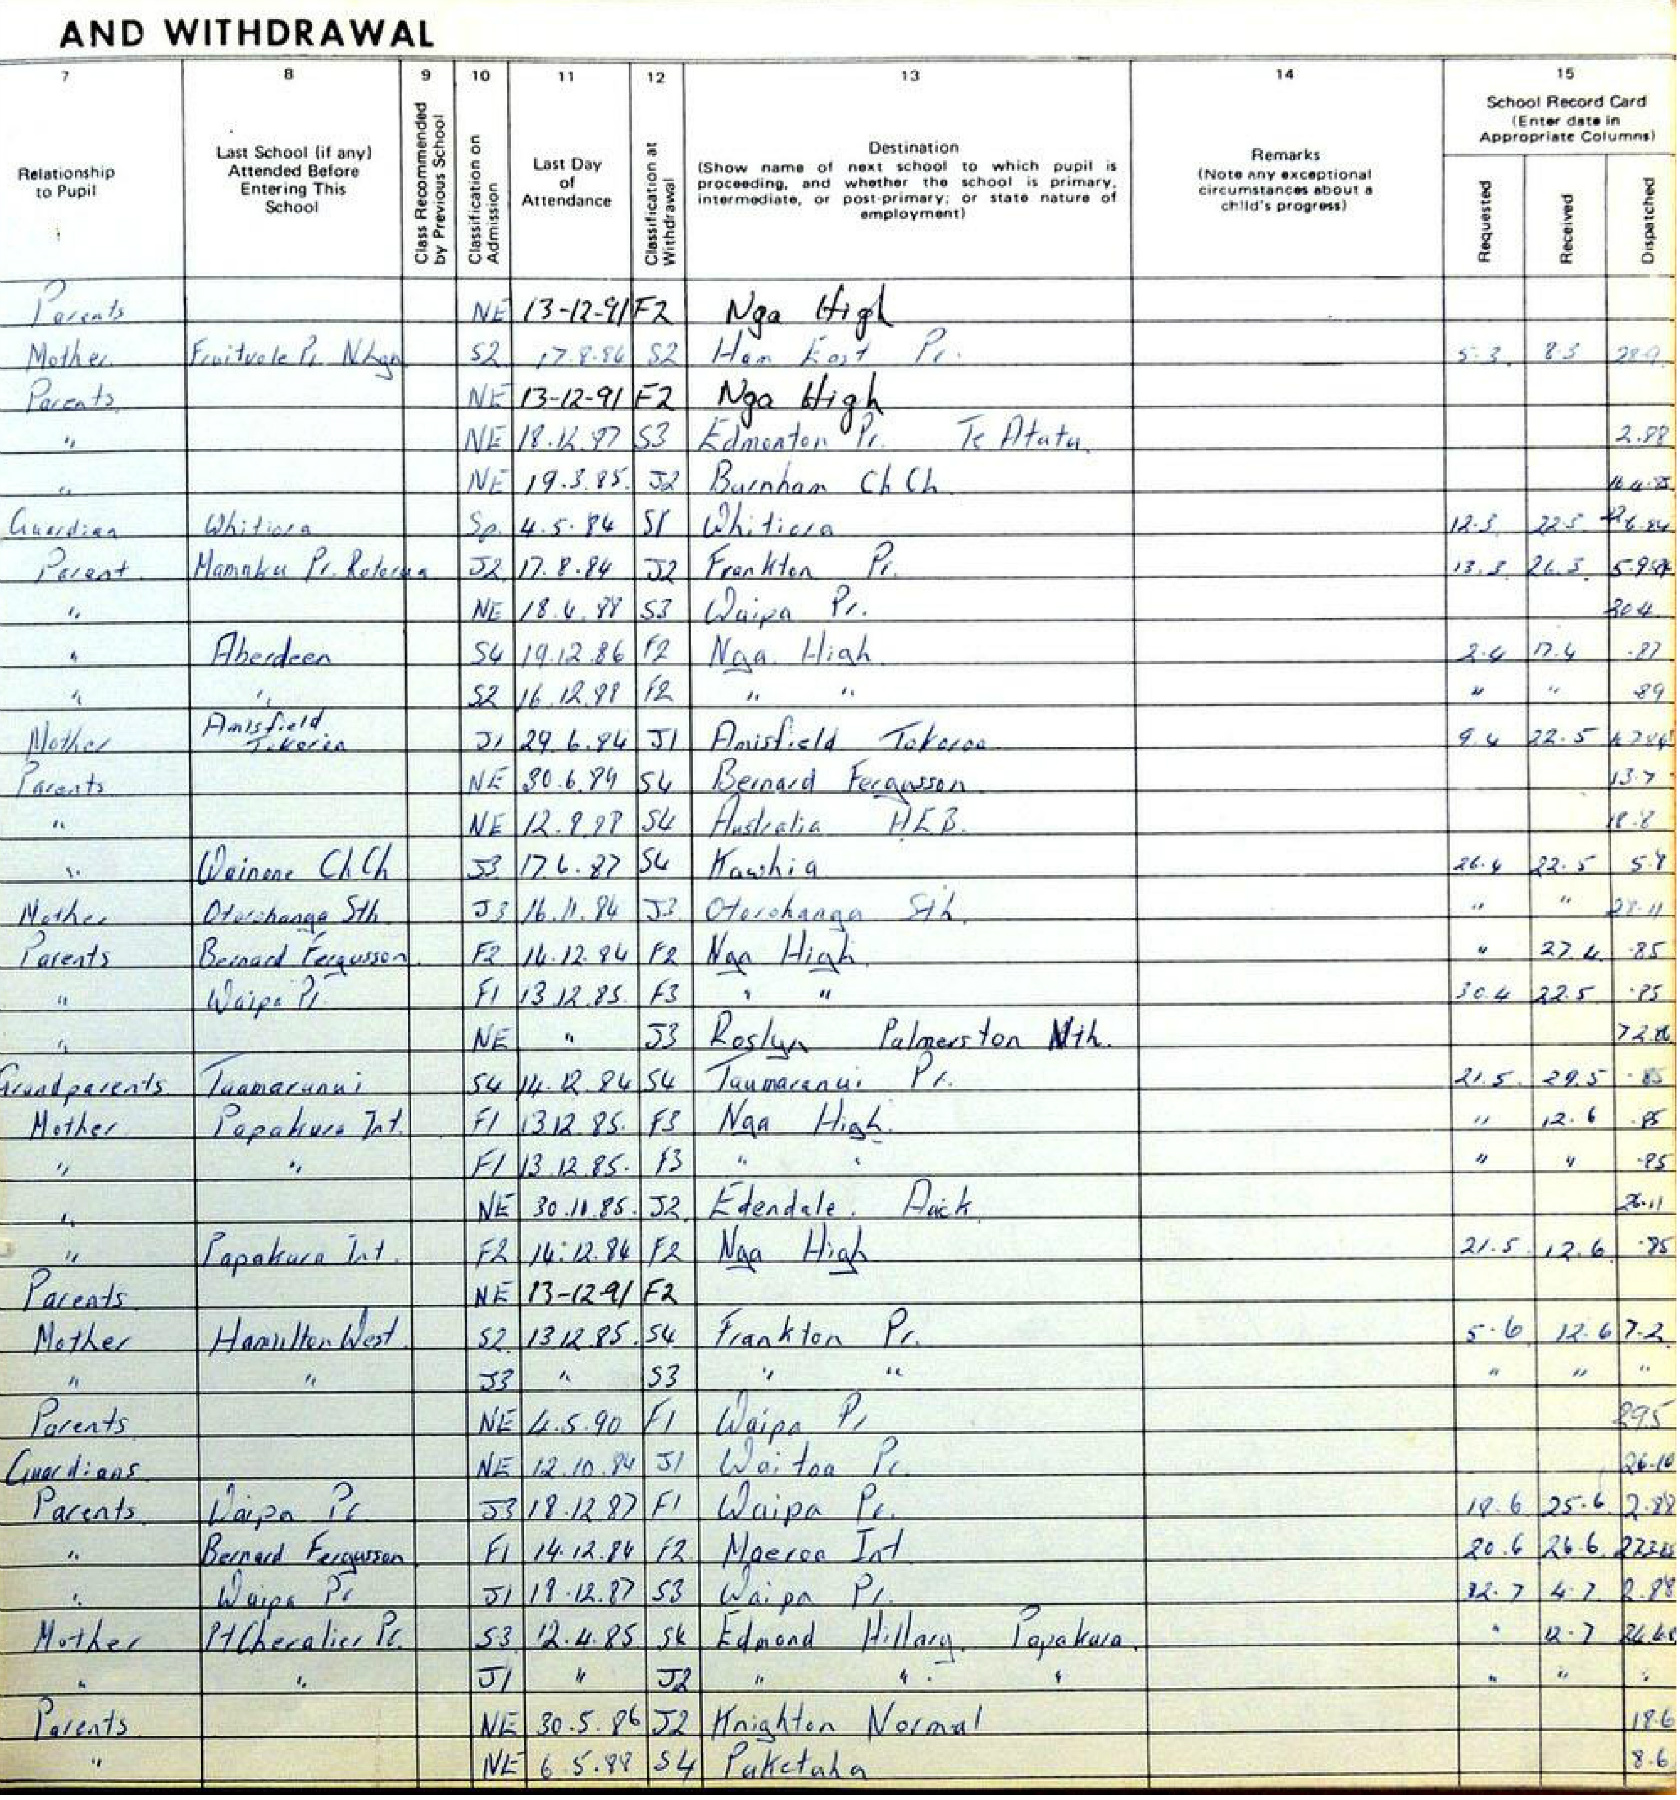 AND WITHDRAWAL
7 8 9 10 11 12 13 14 15
Relationship to Pupil
Last School (if any) Attended Before Entering This School
Class Recommended by Previous School
Classification on Admission
Last Day of Attendance
Classification at Withdrawal
Destination
(Show name of next school to which pupil is proceeding, and whether the school is primary, intermediate, or post-primary; or state nature of employment)
Remarks
(Note any exceptional circumstances about a child's progress)
School Record Card
(Enter date in Appropriate Columns)
Requested Received Dispatched
Parents NE 13-12-91 F2 Nga High
Mother Fruitvale Pr. S2 17.8.86 S2 Ham East Pr. 5.3 8.3
Parents NE 13-12-91 F2 Nga High
" NE 18.12.87 S3 Edmonton Pr. Te Atatu 2.88
" NE 19.3.85. J2 Burnham Ch Ch
Guardian Whitiora Sp. 4.5.84 S1 Whitiora 12.3 22.5
Parent Mamaku Pr. Rotorua J2 17.8.84 J2 Frankton Pr. 13.3 26.3
" NE 18.4.88 S3 Waipa Pr.
" Aberdeen S4 19.12.86 F2 Nga High 2.4 17.4 .87
" " S2 16.12.88 F2 " " " " .89
Mother Amisfield Tokoroa J1 29.6.84 J1 Amisfield Tokoroa 9.4 22.5
Parents NE 30.6.89 S4 Bernard Fergusson 13.7
" NE 12.8.88 S4 Australia 18.8
" Wainone Ch Ch J3 17.6.87 S4 Kawhia 26.4 22.5 5.8
Mother Otorohanga Sth. J3 16.11.84 J3 Otorohanga Sth. " " 28.11
Parents Bernard Fergusson F2 14.12.84 F2 Nga High " 27.4 .85
" Waipa Pr. F1 13.12.85. F3 " " 30.4 22.5 .85
" NE " J3 Roslyn Palmerston Nth.
Grandparents Taumarunui S4 14.12.84 S4 Taumaranui Pr. 21.5 29.5 .85
Mother Papakura Int. F1 13.12.85. F3 Nga High. " 12.6 .85
" " F1 13.12.85. F3 " " " " .85
" NE 30.11.85. J2 Edendale. Auck 26.11
" Papakura Int. F2 14.12.84 F2 Nga High 21.5 12.6 .85
Parents NE 13-12-91 F2
Mother Hamilton West S2 13.12.85. S4 Frankton Pr. 5.6 12.6 7.2
" " J3 " S3 " " " " "
Parents NE 4.5.90 F1 Waipa Pr
Guardians NE 12.10.84 J1 Waitoa Pr. 26.10
Parents Waipa Pr J3 18.12.87 F1 Waipa Pr. 18.6 25.6 2.88
" Bernard Fergusson F1 14.12.84 F2 Maeroa Int 20.6 26.6
" Waipa Pr J1 18.12.87 S3 Waipa Pr. 4.7 2.88
Mother Pt Chevalier Pr. S3 12.4.85 S4 Edmond Hillary. Papakura. " 12.7
" " J1 " J2 " " " " " "
Parents NE 30.5.86 J2 Knighton Normal 18.6
" NE 6.5.88 S4 Puketaha 8.6